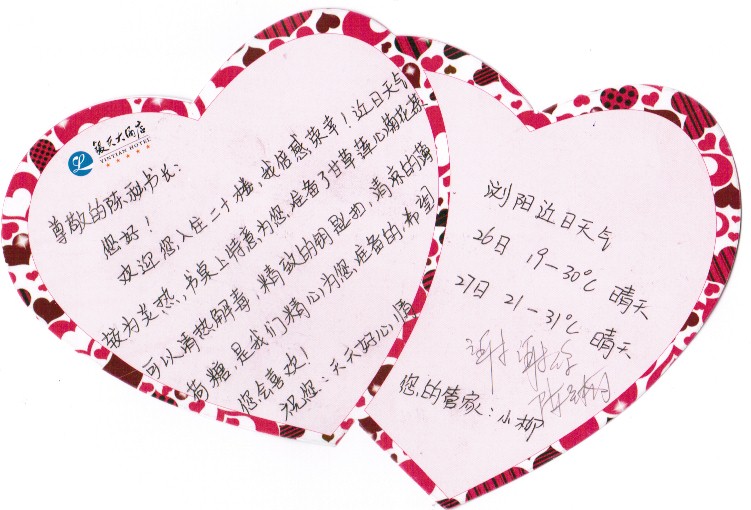 银天大酒店
YINTIAN HOTEL
尊敬的陈秘书长：
您好！
欢迎您入住二十楼，我倍感荣幸！近日天气
较为炎热，书桌上特意为您准备了甘草莲心菊花茶
可以清热解毒，精致的钥匙扣，清凉的薄
荷糖，是我们精心为您准备的，希望
您会喜欢！
祝您：天天好心情
浏阳近日天气
26日 19-30℃ 晴天
27日 21-31℃ 晴天
谢谢你
您的管家：小柳